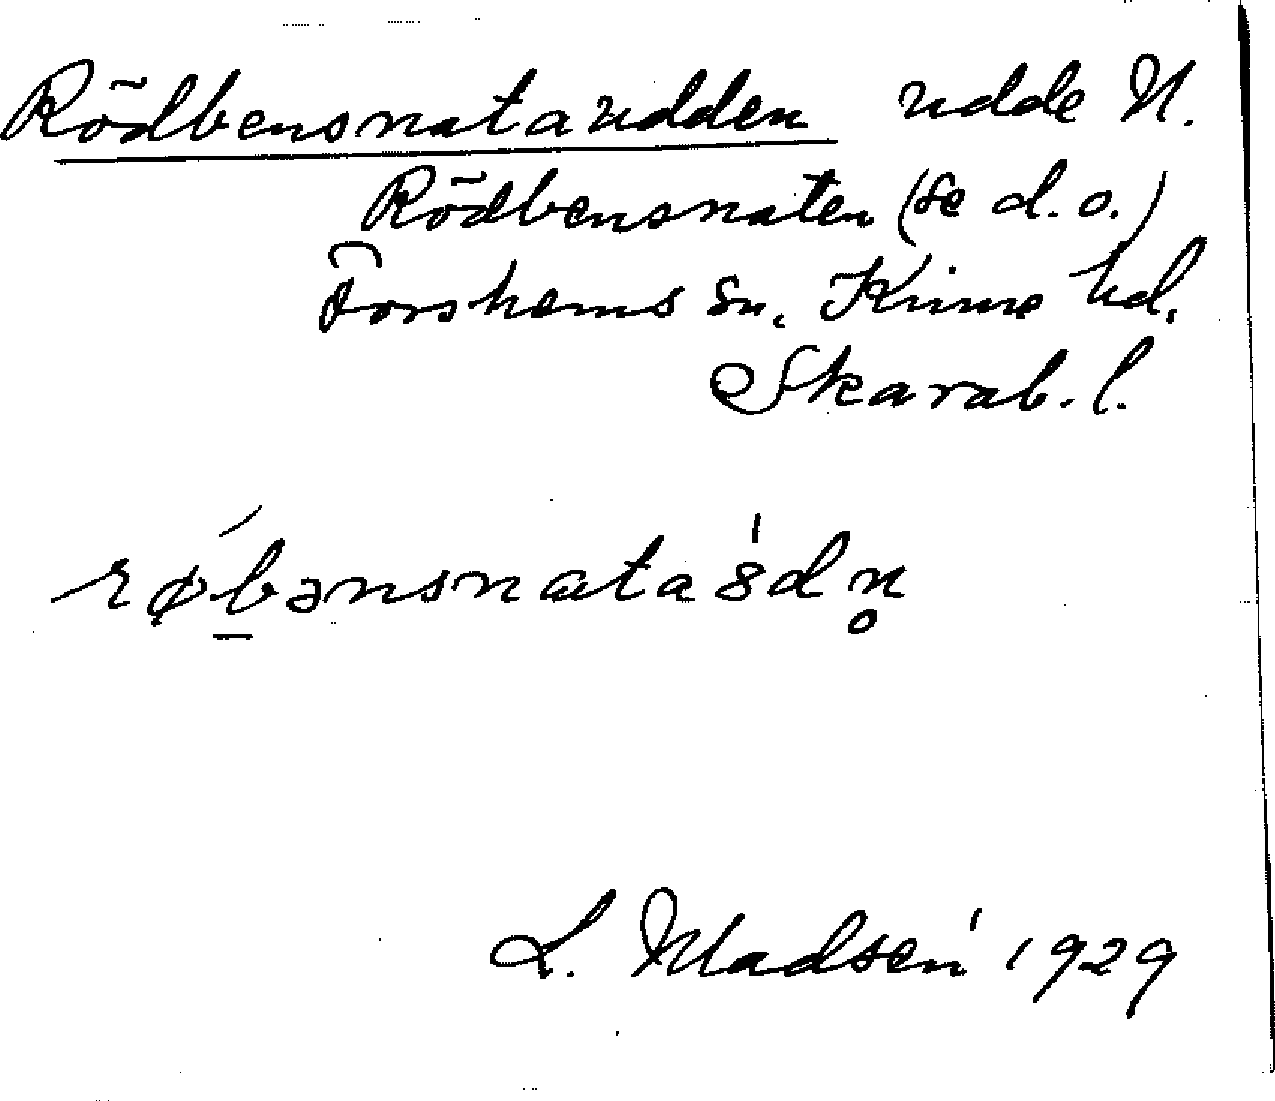 Rödbensnataudden udde N.
Rödbensnaten (se d. o.)
Forshems sn. Kinne hd.
Skarab. l.
røbənsnata
L. Madsen 1929